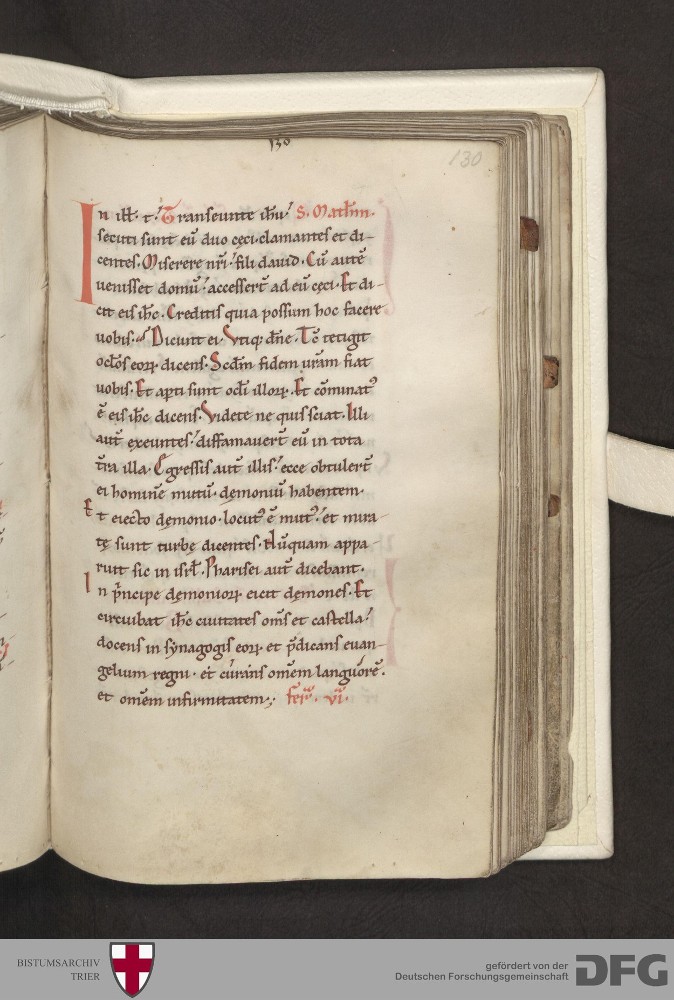 130
130
In illˀ. t. Transeunte ihu S. Mathm.
secuti sunt eū duo cęci clamantes et di-
centes. Miserere nr̄i fili dauid. Cū autē
uenisset domū accessert̄ ad eū cęci. Et di-
cit eis ihc̄. Creditis quia possum hoc facere
uobis. Dicunt ei. Vtiq; dn̄e. Tc̄ tetigit
oc̄los eoꝝ dicens. Scdm̄ fidem ur̄am fiat
uobis. Et apti sunt oc̄li illoꝝ. Et cōminatꝰ
ē eis ihc̄ dicens. Videte ne quis sciat. Illi
aut̄ exeuntes diffamauert̄ eū in tota
tr̄a illa. Egressis aut̄ illis ecce obtulert̄
ei hominē mutū demoniū habentem.
Et eiecto demonio. locutꝰ ē mutꝰ et mira
tę sunt turbę dicentes. Nūquam appa
ruit sic in isrl̄. Pharisei aut̄ dicebant.
In pͥncipe demonioꝝ eicit dęmones. Et
circuibat ihc̄ ciuitates oms̄ et castella
docens in synagogis eoꝝ et p̄dicans euan-
gelium regni. et curans omēm languorē.
et omēm infirmitatem. feria. vi.
BISTUMSARCHIV
TRIER
gefördert von der
Deutschen Forschungsgemeinschaft
DFG